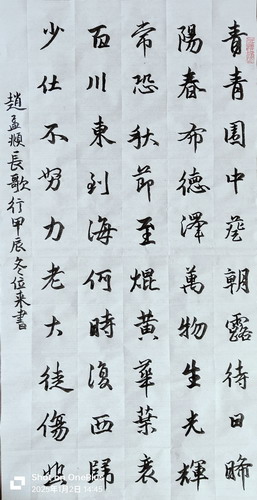 青青園中葵朝露待日晞
陽春布德澤萬物生光輝
常恐秋節至焜黃華葉衰
百川東到海何時復西歸
少仕不努力老大徒傷悲
趙孟頫長歌行甲辰冬位来書
Shot on OnePlus
2025年1月2日 14:45